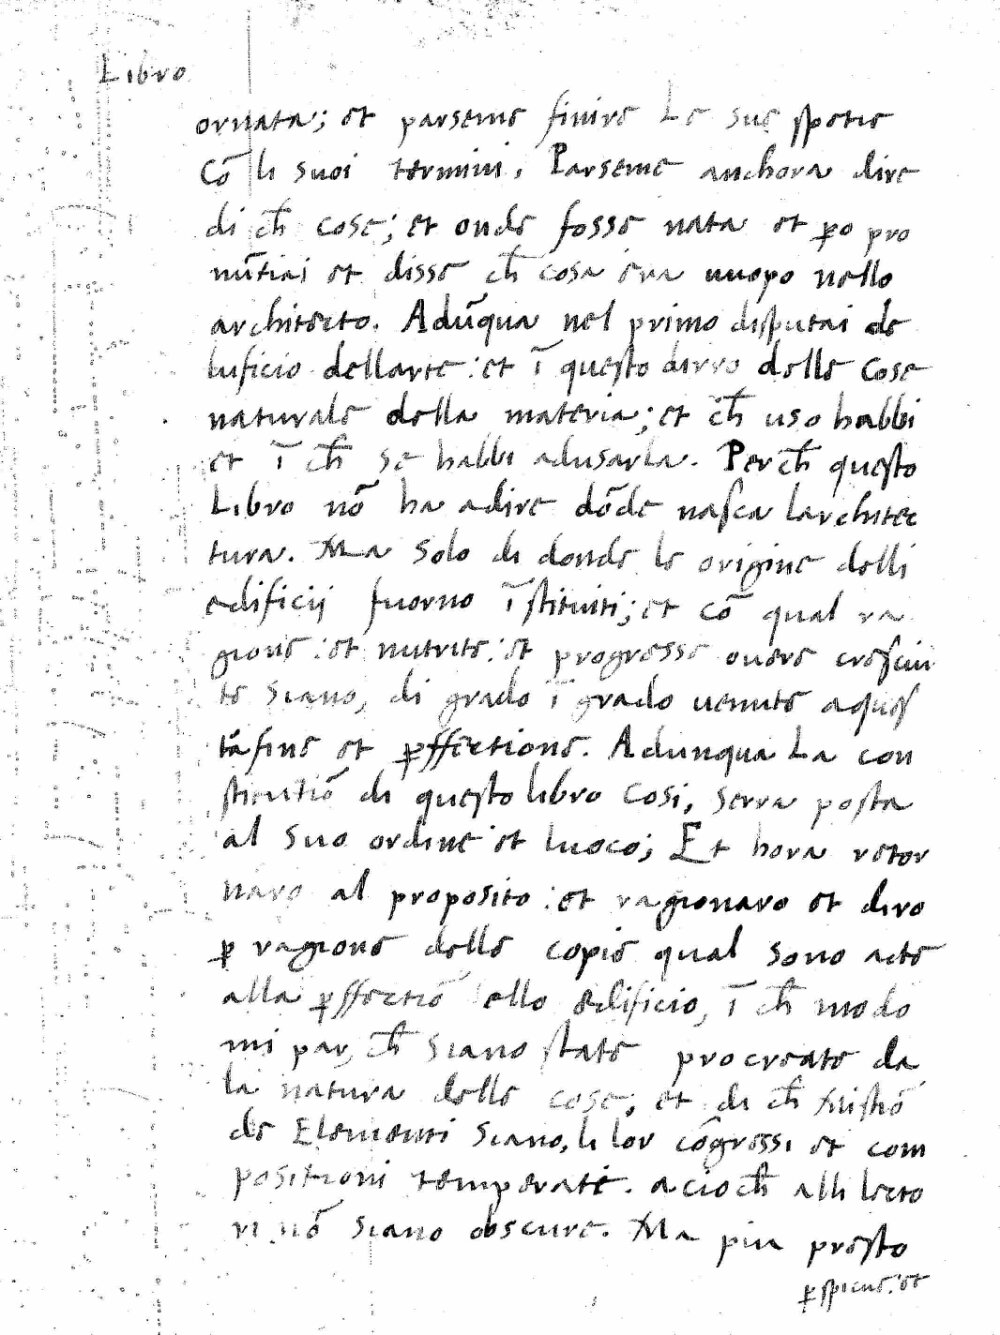 Libro
ornata; et parseme finire Le sue spetie
Cō li suoi termini, Parseme anchora dire
di ch̄ cose; et onde fosse nata et ꝑo pro
nūtiai et disse ch̄ cosa era uuopo nello
architecto. Adūqua nel primo disputai de
luficio dellarte: et ī questo dirro delle cose
naturale della materia; et ch̄ uso habbi
et ī ch̄ se habbi adusarla. Perch̄ questo
Libro nō ha adire dōde nasca larchitec
tura. Ma solo di donde le origine delli
edificij fuorno īstituiti; et cō qual ra
gione: et nutrite: et progresse overe cresciu
te siano, di grado ī grado uenute aques
ta fine et ꝑffectione. Adunqua La con
stitutiō di questo libro Cosi, serra posta
al suo ordine et luoco; Et hora retor
naro al proposito: et ragionaro et diro
ꝑ ragione delle copie qual sono acte
alla ꝑffectiō ello edificio, ī ch̄ modo
mi par, ch̄ siano state procreate da
la natura delle cose, et di ch̄ mistiō
de Elementi siano, li lor cōgressi et com
positioni temperate. acioch̄ alli lecto
ri nō siano obscure. Ma piu presto
ꝑspicue: et